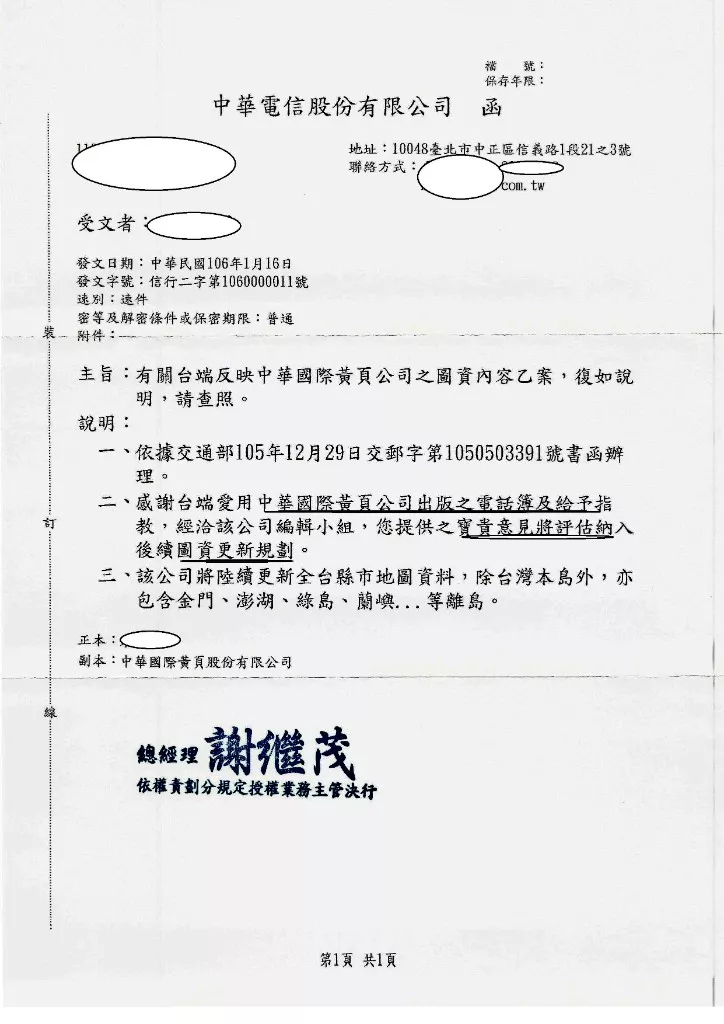 檔 號：
保存年限：
中華電信股份有限公司 函
地址：10048臺北市中正區信義路1段21之3號
聯絡方式：
com.tw
受文者：
發文日期：中華民國106年1月16日
發文字號：信行二字第1060000011號
速別：速件
密等及解密條件或保密期限：普通
附件：
主旨：有關台端反映中華國際黃頁公司之圖資內容乙案，復如說
明，請查照。
說明：
一、依據交通部105年12月29日交郵字第1050503391號書函辦
理。
二、感謝台端愛用中華國際黃頁公司出版之電話簿及給予指
教，經洽該公司編輯小組，您提供之寶貴意見將評估納入
後續圖資更新規劃。
三、該公司將陸續更新全台縣市地圖資料，除台灣本島外，亦
包含金門、澎湖、綠島、蘭嶼...等離島。
正本：
副本：中華國際黃頁股份有限公司
裝
訂
線
總經理 謝繼茂
依權責劃分規定授權業務主管決行
第1頁 共1頁